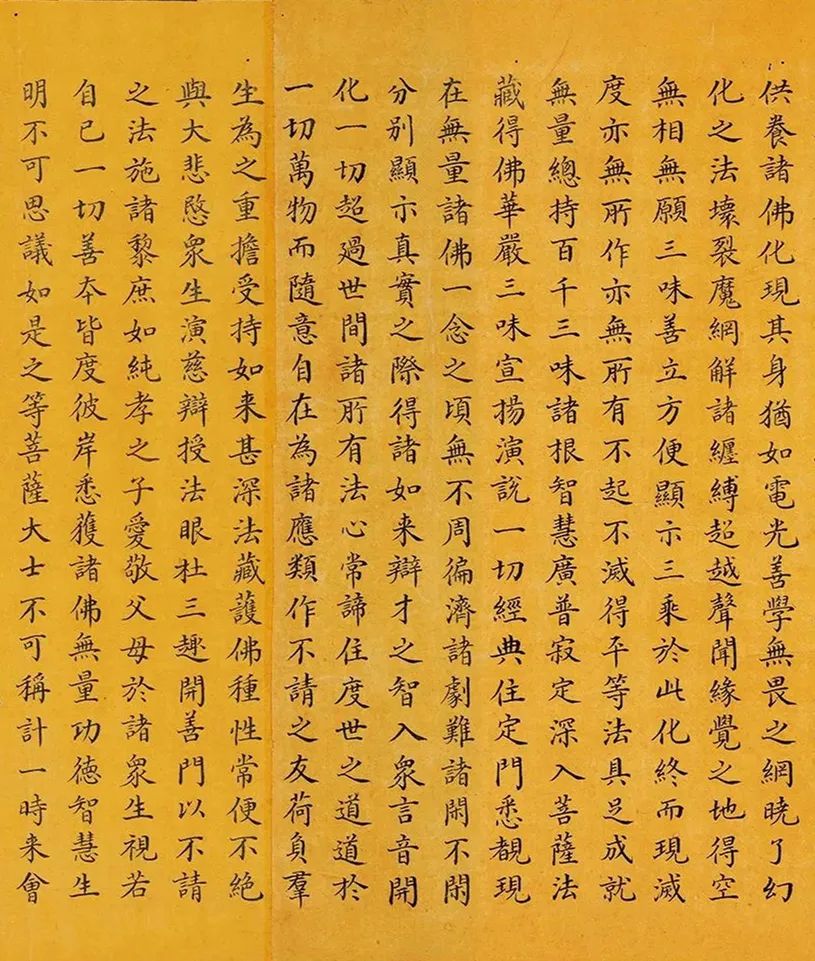 供養諸佛化現其身猶如電光善學無畏之網曉了幻
化之法壞裂魔網解諸纏縛超越聲聞緣覺之地得空
無相無願三昧善立方便顯示三乘於此化終而現滅
度亦無所作亦無所有不起不滅得平等法具足成就
無量總持百千三昧諸根智慧廣普寂定深入菩薩法
藏得佛華嚴三昧宣揚演說一切經典住定門悉覩現
在無量諸佛一念之頃無不周徧濟諸劇難諸閑不閑
分別顯示真實之際得諸如来辯才之智入眾言音開
化一切超過世間諸所有法心常諦住度世之道道於
一切萬物而隨意自在為諸應類作不請之友荷負羣
生為之重擔受持如来甚深法藏護佛種性常使不絕
與大悲愍眾生演慈辯授法眼杜三趣開善門以不請
之法施諸黎庶如純孝之子愛敬父母於諸眾生視若
自己一切善本皆度彼岸悉獲諸佛無量功德智慧生
明不可思議如是之等菩薩大士不可稱計一時来會